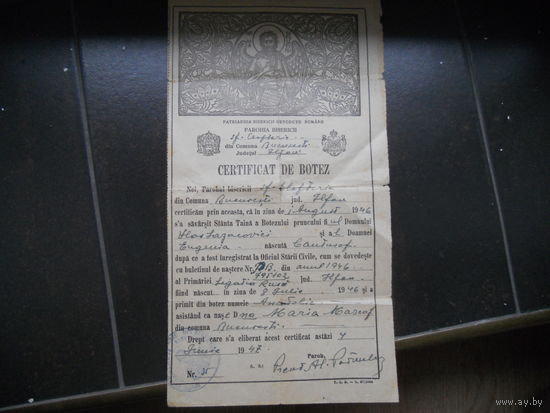 PATRIARHIA BISERICII ORTODOXE ROMÂNE
PAROHIA BISERICII
sf.
din Comuna Bucuresti
Județul Ilfov
CERTIFICAT DE BOTEZ
Noi, Parohul bisericii sf.
din Comuna Bucuresti jud. Ilfov
certificăm prin aceasta, că în ziua de 1 August 1946
s'a săvârșit Sfânta Taină a Botezului pruncului f ul Domnului
și a Doamnei
Eugenia născută
după ce a fost înregistrat la Oficiul Stării Civile, cum se dovedește
cu buletinul de naștere Nr. din anul 1946
al Primăriei Legatia Rusă jud. Ilfov
fiind născut în ziua de 8 Iulie 1946 și a
primit din botez numele Anatolie
asistând ca naș D na Maria
din comuna Bucuresti
Drept care s'a eliberat acest certificat astăzi 4
Iunie 1947
Paroh,
L. S.
Nr. 35 Preot Al.